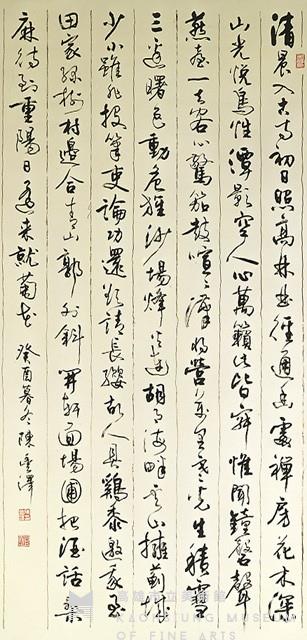 清晨入古寺初日照高林曲徑通幽處禪房花木深
山光悅鳥性潭影空人心萬籟此皆寂惟聞鐘磬聲
燕臺一去客心驚笳鼓喧喧漢將營萬里寒光生積雪
三邊曙色動危旌沙場烽火連胡月海畔雲山擁薊城
少小雖非投筆吏論功還欲請長纓故人具鷄黍邀我至
田家綠樹村邊合青山郭外斜開軒面場圃把酒話桑
麻待到重陽日還來就菊花 癸酉暮冬陳澤
高雄市立美術館
KAOHSIUNG MUSEUM
OF FINE ARTS